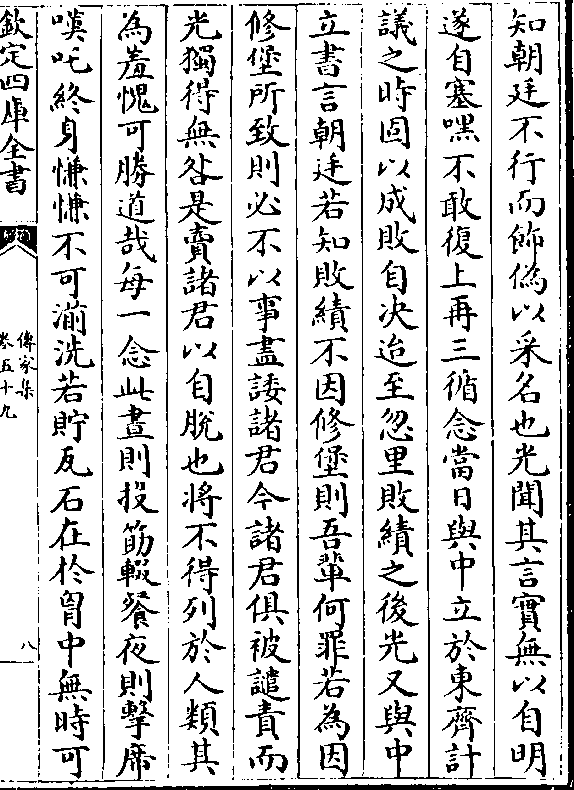 知朝廷不行而飾偽以采名也光聞其言實無以自明
遂自塞嘿不敢復上再三循念當日與中立於東齊計
議之時固以成敗自決迨至忽里敗績之後光又與中
立書言朝廷若知敗績不因修堡則吾輩何罪若為因
修堡所致則必不以事盡諉諸君今諸君俱被譴責而
光獨得無咎是賣諸君以自脫也將不得列於人類其
為羞愧可勝道哉每一念此晝則投筯輟餐夜則擊席
嘆吒終身慊慊不可湔洗若貯瓦石在於胷中無時可
欽定四庫全書
傳家集
卷五十九
八